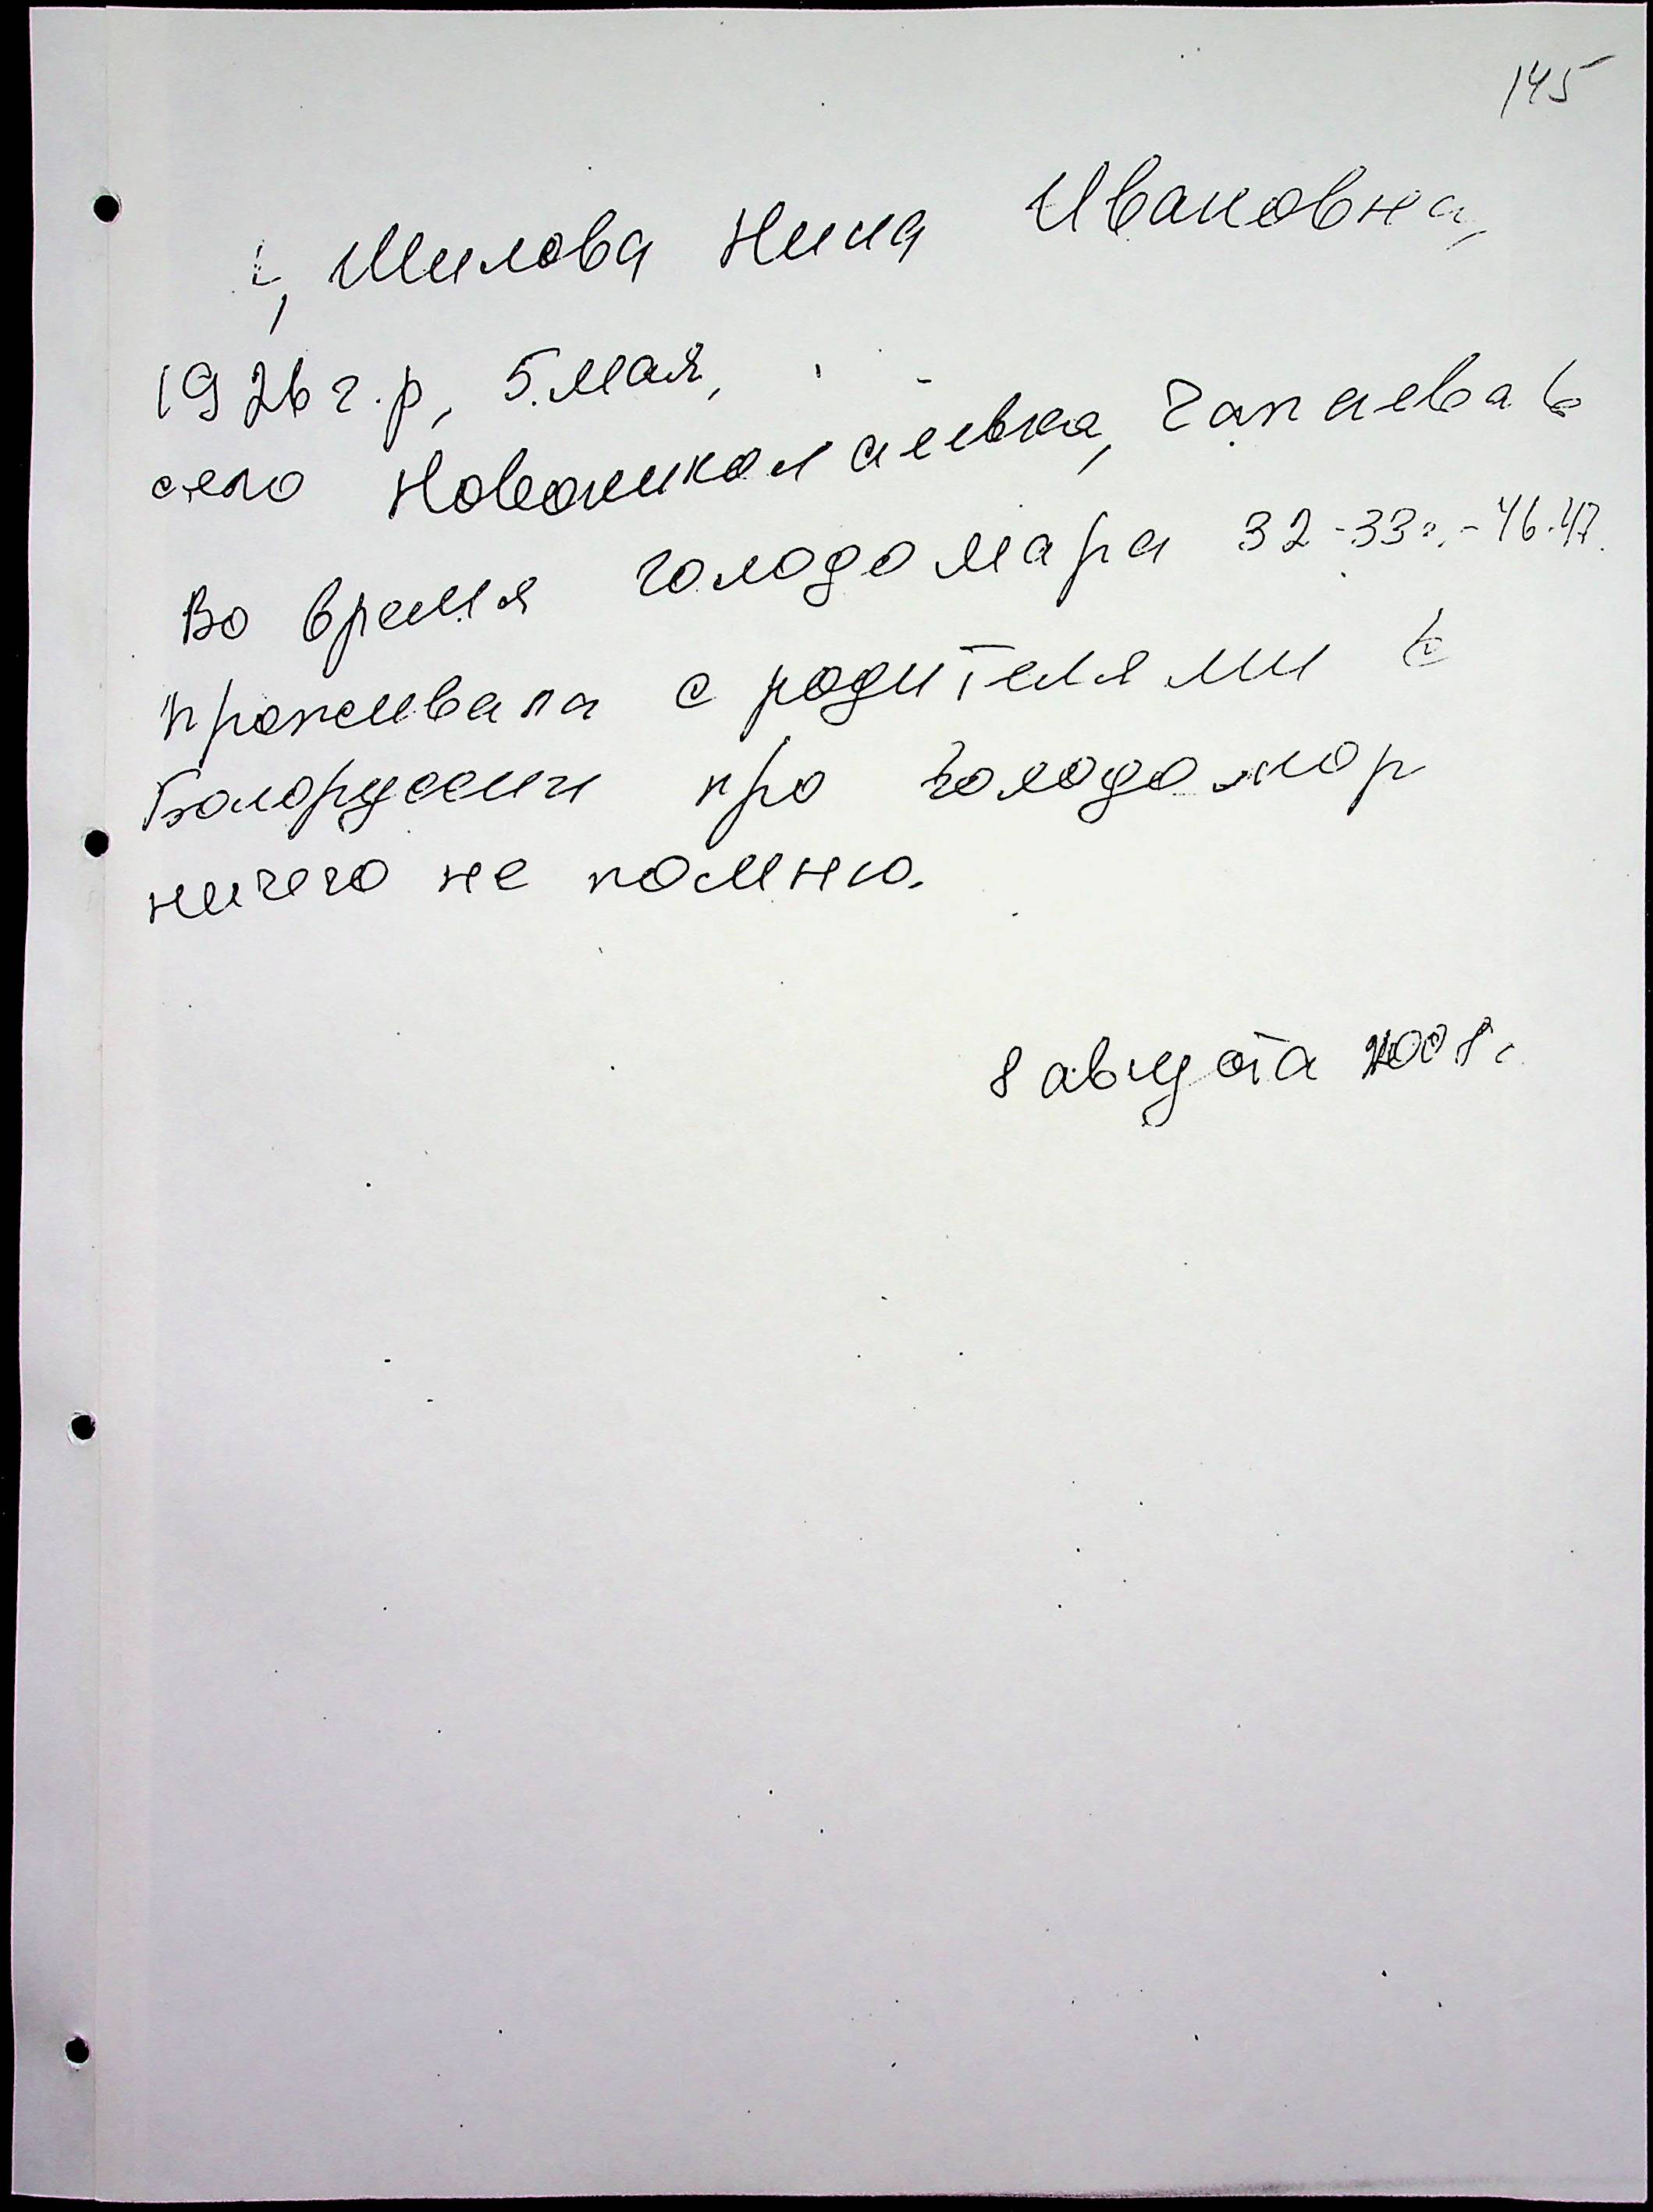 145
Шилова Нина Ивановна,
1926 г.р, 5.мая,
село Новониколаевка, Чапаева 6
Во время голодомара 32-33г.-46.47.
проживала с родителями в
Болоруссии про голодомор
ничего не помню.
8 августа 2008 г.